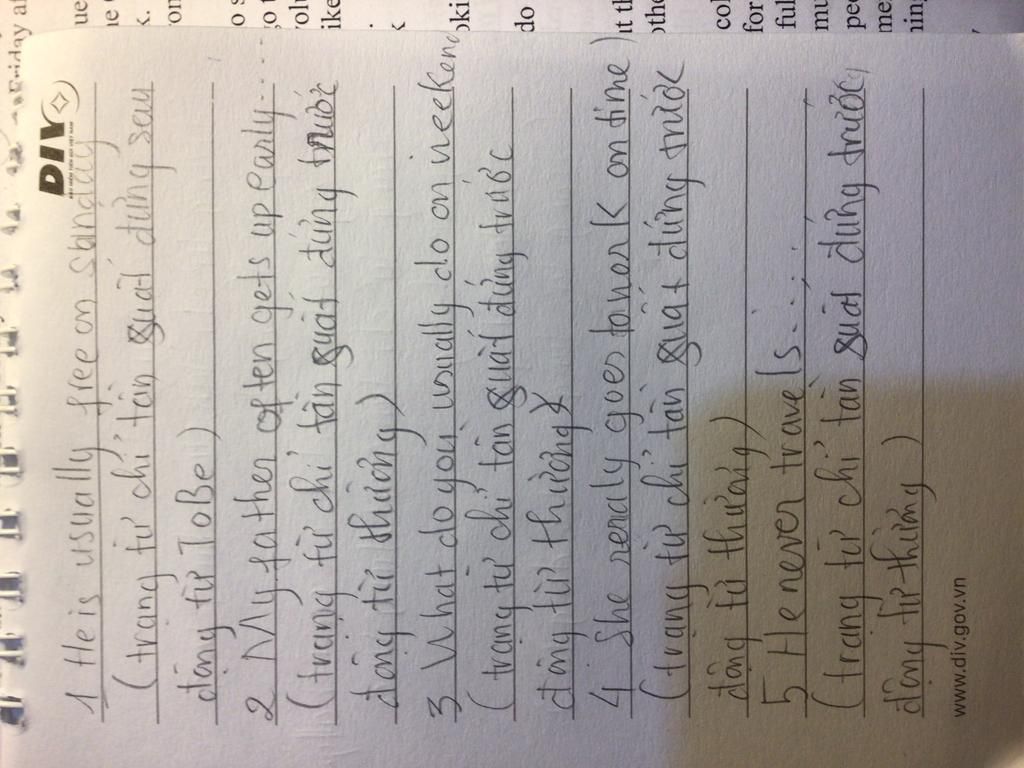 DIV
1 He is usually free on standay
(trạng từ chỉ tần suất đứng sau
động từ To Be)
2 My father often gets up early....
(trạng từ chỉ tần suất đứng trước
động từ thường)
3 What do you usually do on weekend
(trạng từ chỉ tần suất đứng trước
động từ thường)
4 She reraly goes to work on time
(trạng từ chỉ tần suất đứng trước
động từ thường)
5 He never travels.....
(trạng từ chỉ tần suất đứng trước
động từ thường)
www.div.gov.vn